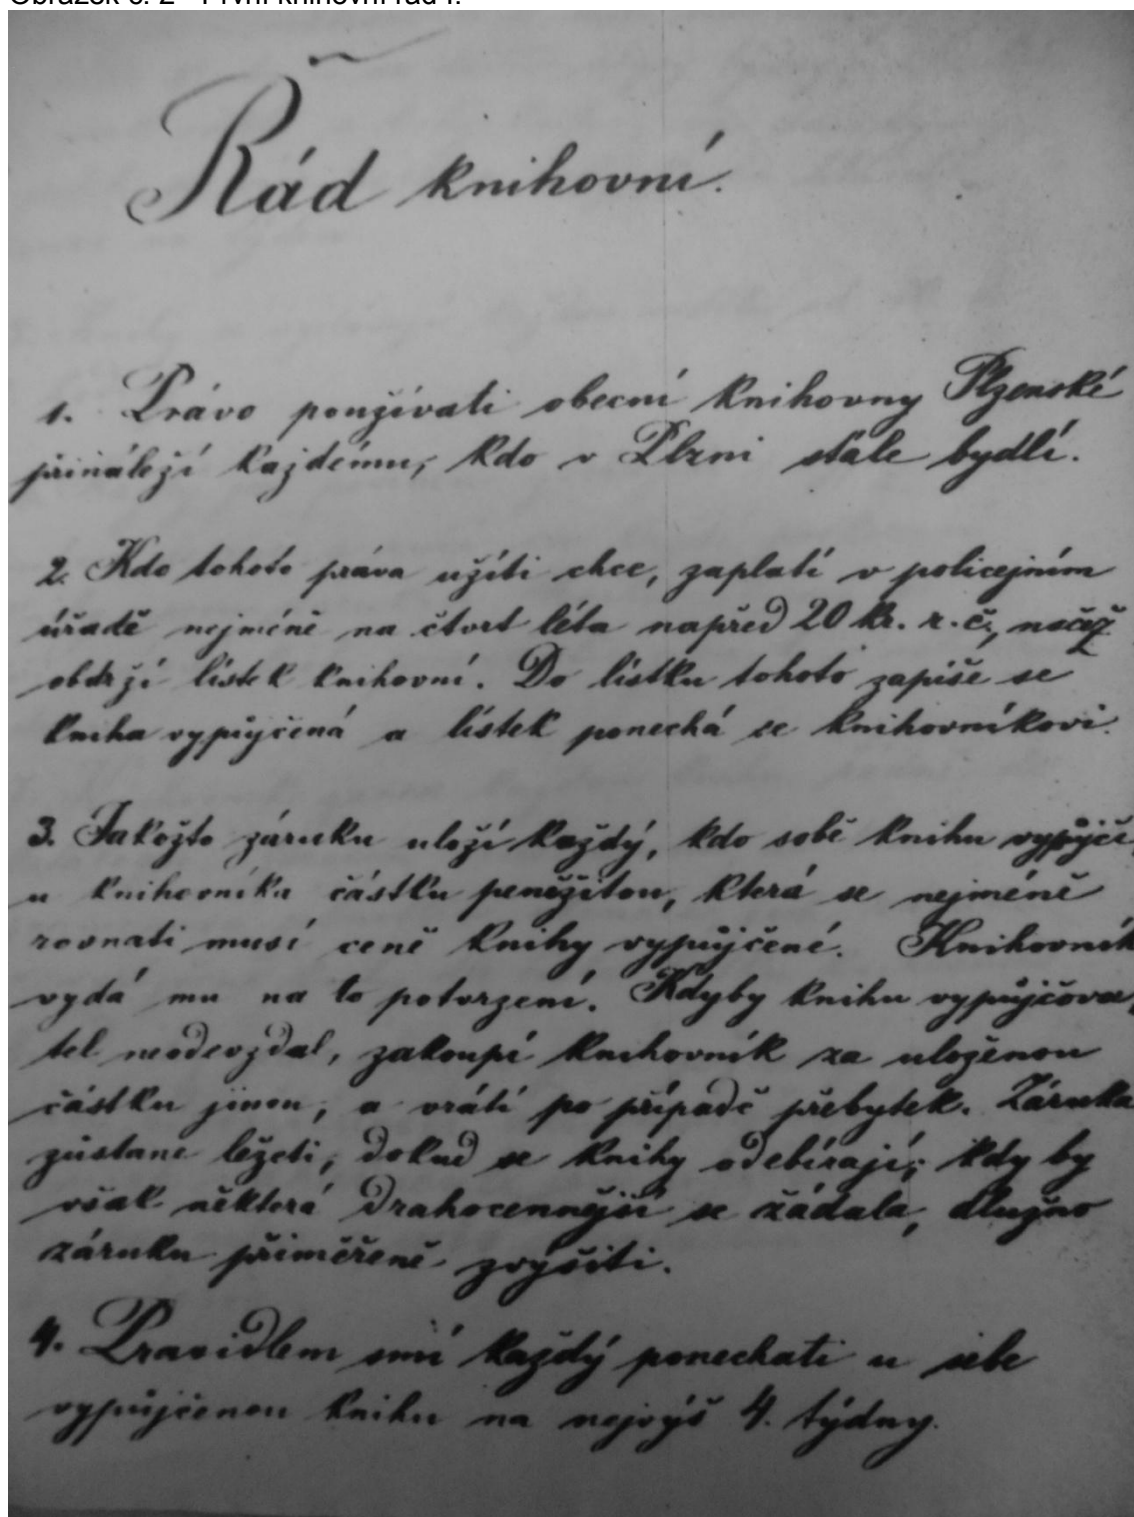 Obrázek č. 2 - První knihovní řád I.
Řád knihovní.
1. Právo použivati obecní knihovny Plzenské
přináleží každému, kdo v Plzni stále bydlí.
2. Kdo tohoto práva užíti chce, zaplatí v policejním
úřadě nejméně na čtvrt léta napřed 20 kr. r. č., načež
obdrží lístek knihovní. Do lístku tohoto zapíše se
kniha vypůjčená a lístek ponechá se knihovníkovi.
3. Jakožto záruku uloží každý, kdo sobě knihu vypůjčí,
u knihovníka částku peněžitou, která se nejméně
rovnati musí ceně knihy vypůjčené. Knihovník
vydá mu na to potvrzení. Kdyby knihu vypůjčova-
tel neodevzdal, zakoupí knihovník za uloženou
částku jinou, a vrátí po případě přebytek. Záruka
zůstane ležeti, dokud se knihy odebírají; kdy by
však některá drahocennější se žádala, dlužno
záruku přiměřeně zvýšiti.
4. Pravidlem smí každý ponechati u sebe
vypůjčenou knihu na nejvýš 4. týdny.